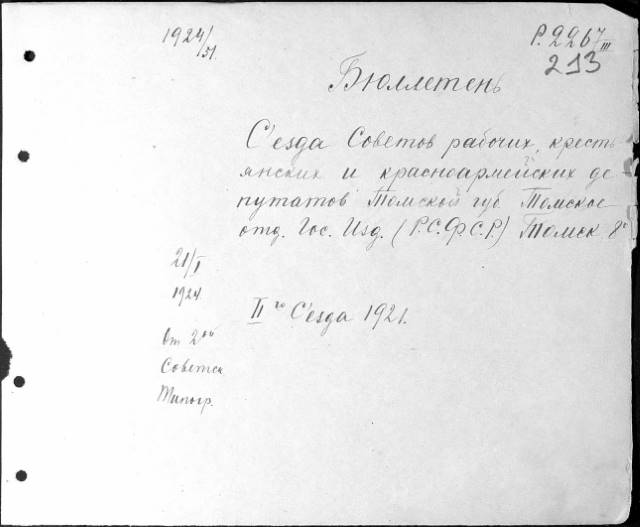 1924/51.
Р.2267/III
213
Бюллетень
С'езда Советов рабочих, кресть
янских и красноармейских де
путатов Томской губ Томское
отд. Гос. Изд. (Р.С.Ф.С.Р.) Томск 8°
21/I
1924
От 2ой
Советск
Типогр.
II го С'езда 1921.